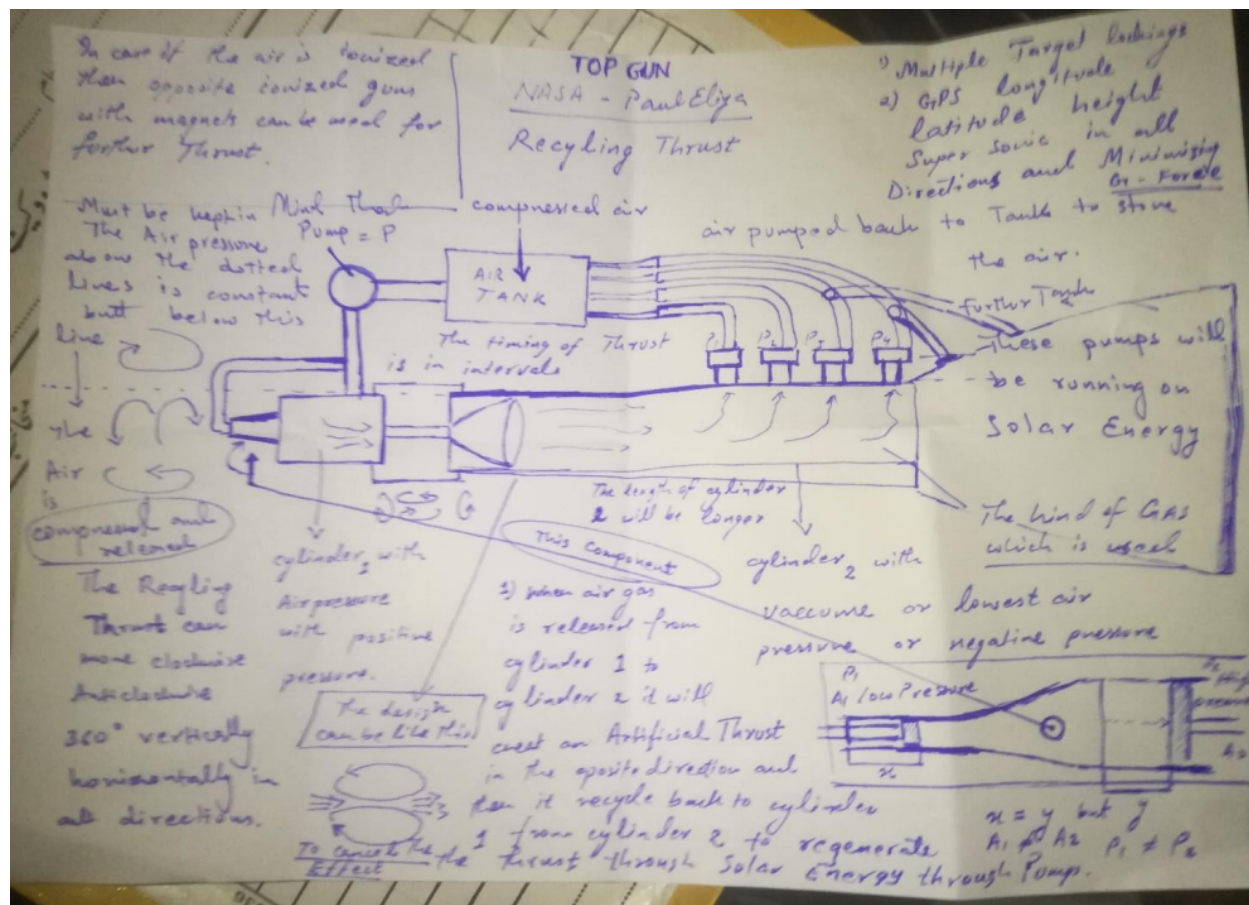 In case if the air is ionized
then opposite ionized guns
with magnets can be used for
further Thrust.
TOP GUN
NASA - Paul Eliya
Recyling Thrust
1) Multiple Target lockings
2) GPS longitude
latitude height
Super sonic in all
Directions and Minimizing
G - Force
Must be kept in Mind That
The Air pressure
above the dotted
lines is constant
butt below this
line
the
Air
is
compressed and
released
Pump = P
compressed air
AIR
TANK
air pumped back to Tank to store
the air.
further Tank
P1
P2
P3
P4
The timing of Thrust
is in intervals
These pumps will
be running on
Solar Energy
The length of cylinder
2 will be longer
The kind of GAS
which is used
This component
cylinder 1 with
Air pressure
with positive
pressure.
cylinder 2 with
vaccume or lowest air
pressure or negative pressure
The Recyling
Thrust can
move clockwise
Anticlockwise
360° vertically
horizontally in
all directions.
The design
can be like this
To cancel the
Effect
1) When air gas
is released from
cylinder 1 to
cylinder 2 it will
creat an Artificial Thrust
in the oposite direction and
then it recycle back to cylinder
1 from cylinder 2 to regenerate
the Thrust through Solar Energy through Pumps.
P1
A1 low Pressure
P2
High
pressure
A2
x
y
x = y but
A1 ≠ A2 P1 ≠ P2